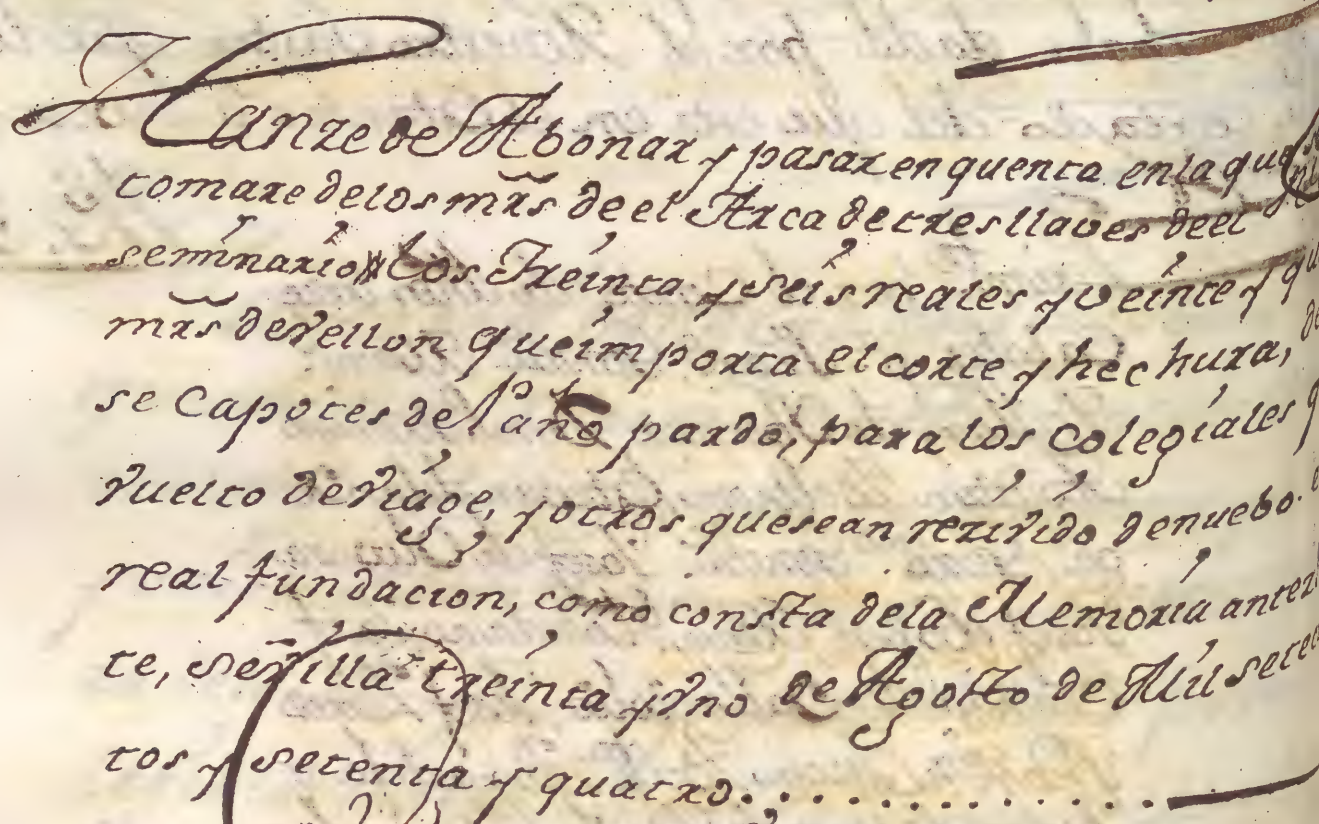 Hanze de Abonar y pasar en quenta en la que se
tomare de los mrs̃ de el Arca de tres llaves de el
seminario los Treinta y seis reales y veinte y qu
mrs̃ de vellon que importa el corte y hechura, de
se Capotes de Paño pardo, para los colegiales q
vuelto de viage, y otros que sean rezivido de nuebo e
real fundacion, como consta de la Memoria anteze
te, sevilla treinta y vno de Agosto de Mil sete
tos y setenta y quatro.............